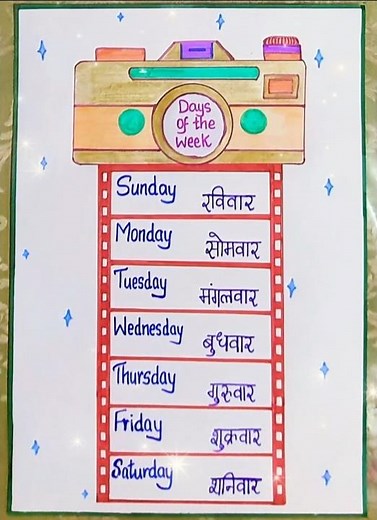 Days
of the
week
Sunday रविवार
Monday सोमवार
Tuesday मंगलवार
Wednesday बुधवार
Thursday गुरुवार
Friday शुक्रवार
Saturday शनिवार